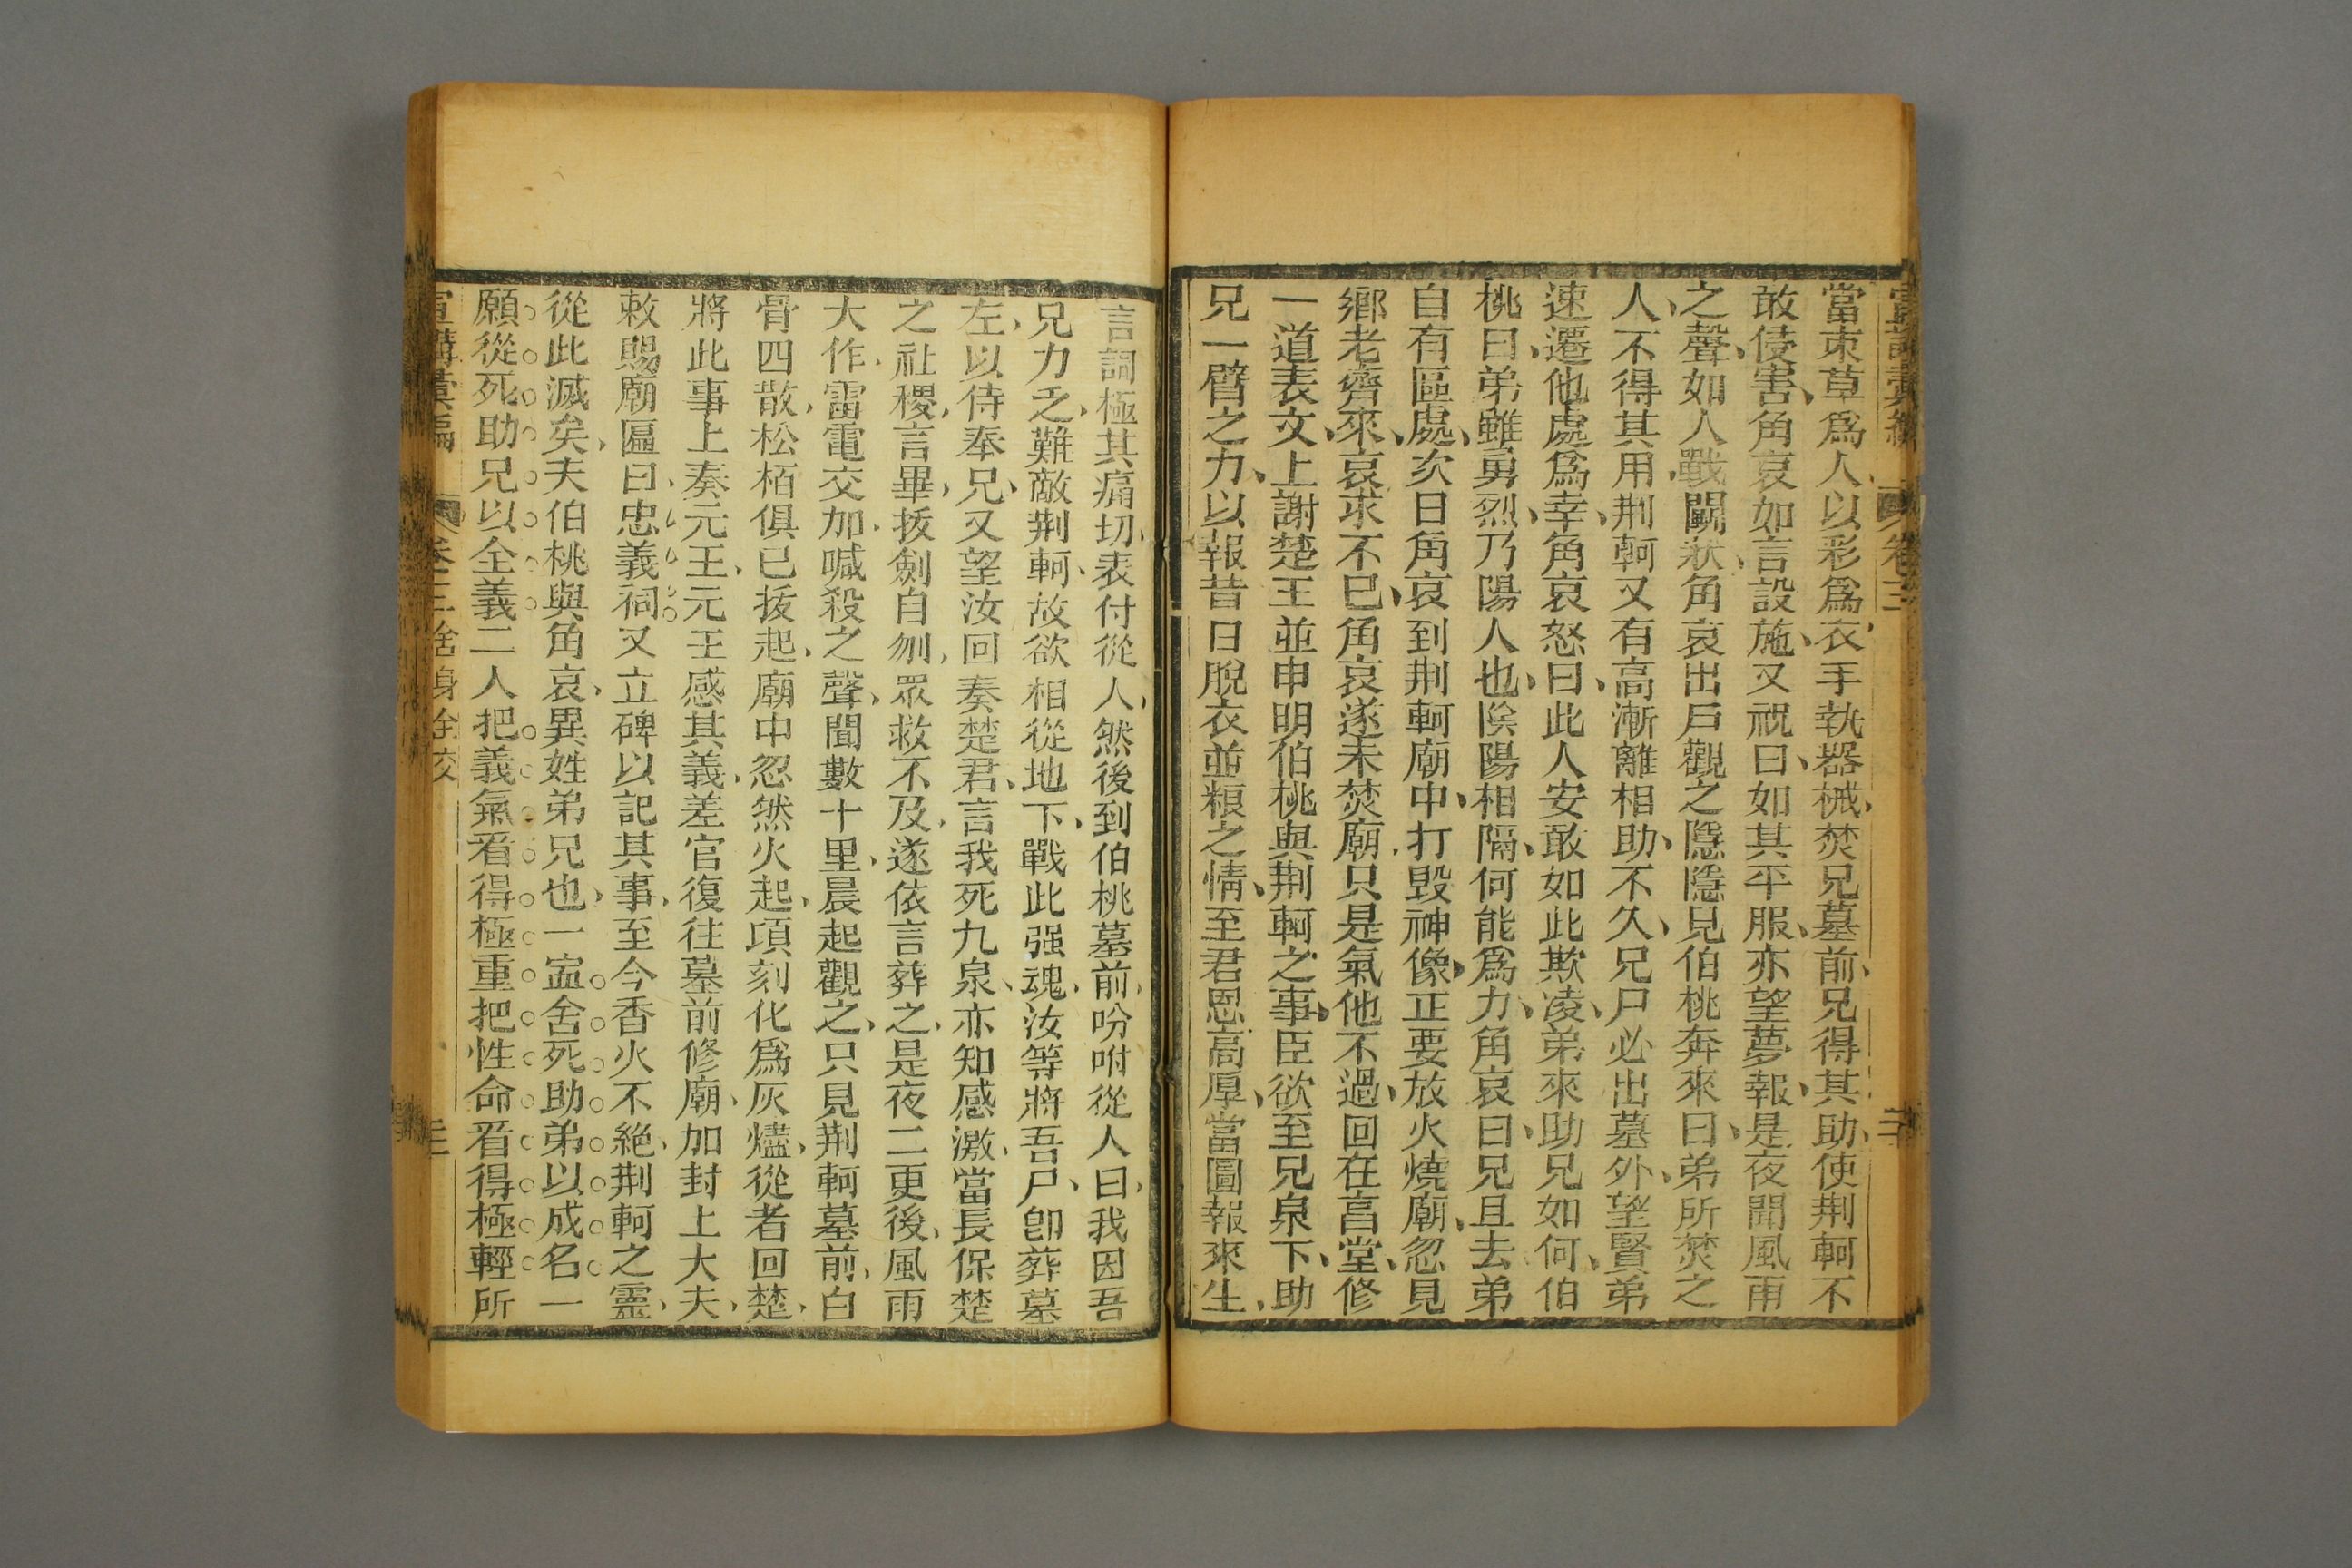 宣講彙編 卷三
當束草爲人以彩爲衣手執器械焚兄墓前兄得其助使荆軻不
敢侵害角哀如言設施又祝曰如其平服亦望夢報是夜聞風雨
之聲如人戰鬭狀角哀出戶觀之隱隱見伯桃奔來曰弟所焚之
人不得其用荆軻又有高漸離相助不久兄尸必出墓外望賢弟
速遷他處爲幸角哀怒曰此人安敢如此欺凌弟來助兄如何伯
桃曰弟雖勇烈乃陽人也陰陽相隔何能爲力角哀曰兄且去弟
自有區處次日角哀到荆軻廟中打毀神像正要放火燒廟忽見
鄉老齊來哀求不已角哀遂未焚廟只是氣他不過回在亯堂修
一道表文上謝楚王並申明伯桃與荆軻之事臣欲至兄泉下助
兄一臂之力以報昔日脫衣並粮之情至君恩高厚當圖報來生
言詞極其痛切表付從人然後到伯桃墓前吩咐從人曰我因吾
兄力乏難敵荆軻故欲相從地下戰此强魂汝等將吾尸卽葬墓
左以待奉兄又望汝回奏楚君言我死九泉亦知感激當長保楚
之社稷言畢拔劍自刎眾救不及遂依言葬之是夜二更後風雨
大作雷電交加喊殺之聲聞數十里晨起觀之只見荆軻墓前白
骨四散松栢俱已拔起廟中忽然火起頃刻化爲灰燼從者回楚
將此事上奏元王元王感其義差官復往墓前修廟加封上大夫
敕賜廟區曰忠義祠又立碑以記其事至今香火不絶荆軻之靈
從此滅矣夫伯桃與角哀異姓弟兄也一寍舍死助弟以成名一
願從死助兄以全義二人把義氣看得極重把性命看得極輕所
宣講彙編 卷三 捨身全交